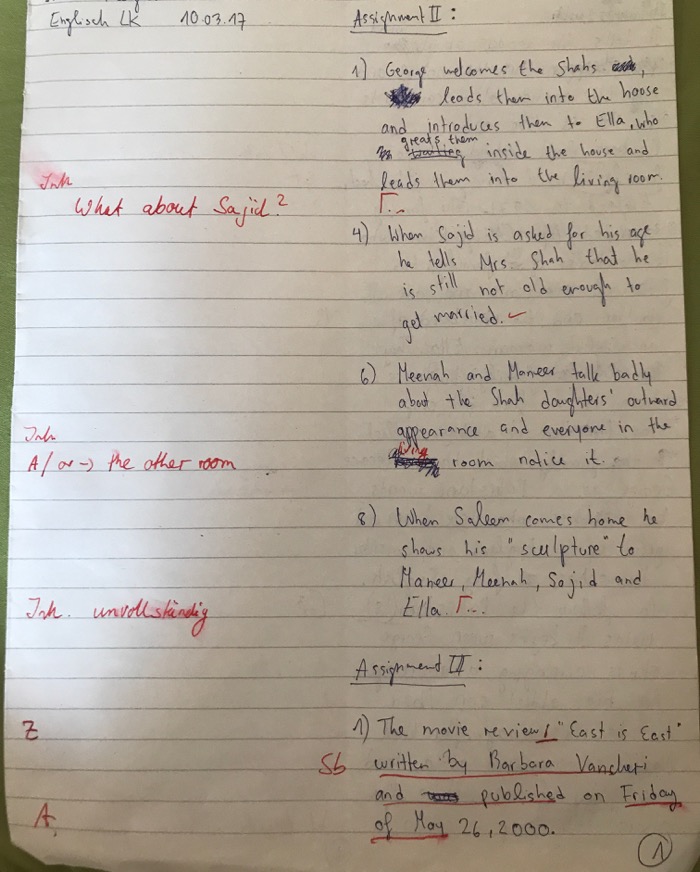 Englisch LK 10.03.17
Assignment II :
1) George welcomes the Shahs,
leads them into the house
and introduces them to Ella, who
greats them
inside the house and
leads them into the living room.
Γ...
Inh
What about Sajid?
4) When Sajid is asked for his age
he tells Mrs. Shah that he
is still not old enough to
get married. ✓
6) Meenah and Maneer talk badly
about the Shah daughters' outward
appearance and everyone in the
living room notice it.
Inh
A/ or -> the other room
8) When Saleem comes home he
shows his "sculpture" to
Maneer, Meenah, Sajid and
Ella. Γ...
Inh. unvollständig
Assignment III :
Z
1) The movie review/ "East is East"
Sb written by Barbara Vancheri
and published on Friday
A. of May 26, 2000.
1